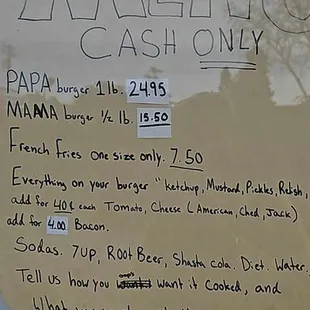 MENU
CASH ONLY
PAPA burger 1 lb. 24.95
MAMA burger 1/2 lb. 15.50
French Fries one size only. 7.50
Everything on your burger " Ketchup, Mustard, Pickles, Relish,
add for 40¢ each Tomato, Cheese (American, Ched, Jack)
add for 4.00 Bacon.
Sodas. 7UP, ROOT Beer, Shasta Cola. Diet. Water.
Tell us how you want it Cooked, and
What